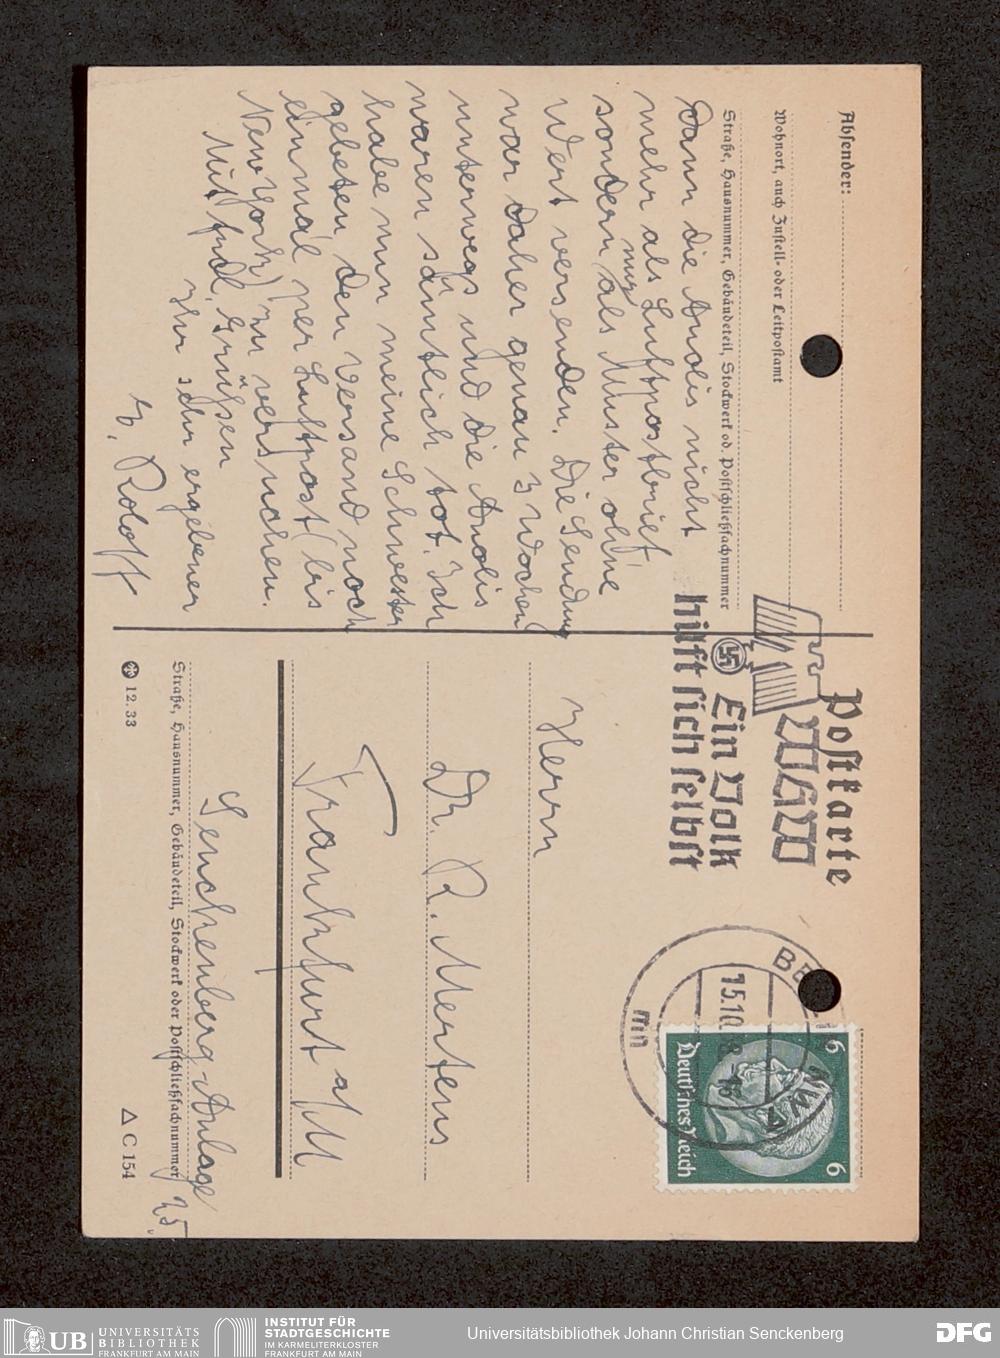 Absender:
Wohnort, auch Zustell- oder Leitpostamt
Straße, Hausnummer, Gebäudeteil, Stockwerk od. Postschließfachnummer
dann die Anolis nicht
mehr als Luftpostbrief,
sondern als Muster ohne
Wert versenden. Die Sendung
war daher genau 3 Wochen
unterwegs und die Anolis
waren sämtlich tot. Ich
habe nun meine Schwester
gebeten, den Versand noch
einmal per Luftpost (bis
New York) zu versuchen.
Mit frdl. Grüßen
Ihr sehr ergebener
E. Roloff
Postkarte
WHW
Ein Volk
hilft sich selbst
15.10.
Deutsches Reich
6
6
Herrn
Dr. R. Mertens
Frankfurt a/M
Senckenberg-Anlage 25.
Straße, Hausnummer, Gebäudeteil, Stockwerk oder Postschließfachnummer
12.33
△ C 154
UB UNIVERSITÄTS
BIBLIOTHEK
FRANKFURT AM MAIN
INSTITUT FÜR
STADTGESCHICHTE
IM KARMELITERKLOSTER
FRANKFURT AM MAIN
Universitätsbibliothek Johann Christian Senckenberg
DFG